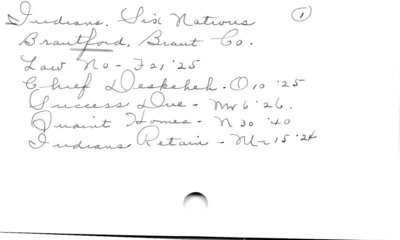 Indians, Six Nations ①
Brantford, Brant Co.
Law No - F 21 '25
Chief Deskeheh - O 10 '25
Success Due - Mr 6 '26.
Quaint Homes - N 30 '40
Indians Retain - Mr 15 '24